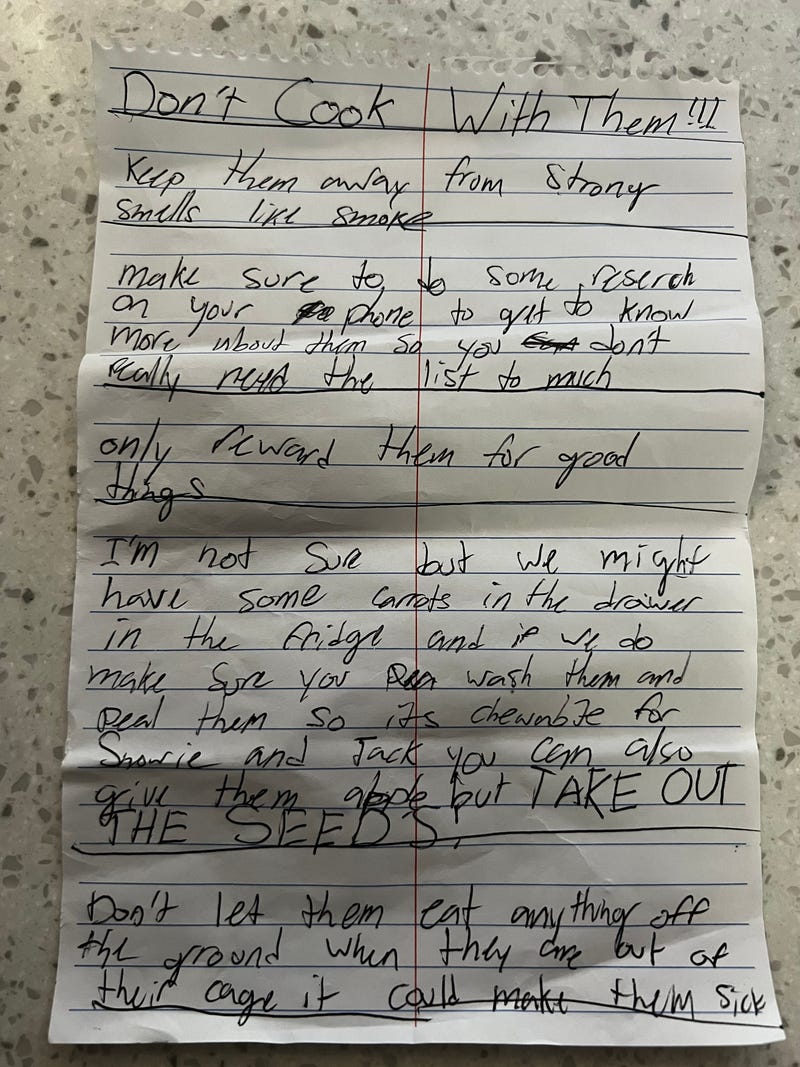 Don't Cook With Them!!!
Keep them away from strong
smells like smoke
make sure to do some reserch
on your phone to get to know
more about them so you don't
really need the list to much
only reward them for good
things
I'm not sure but we might
have some carrots in the drawer
in the fridge and if we do
make sure you wash them and
peal them so its chewable for
Snowie and Jack you can also
give them apple but TAKE OUT
THE SEEDS.
Don't let them eat anything off
the ground when they are out of
their cage it could make them sick